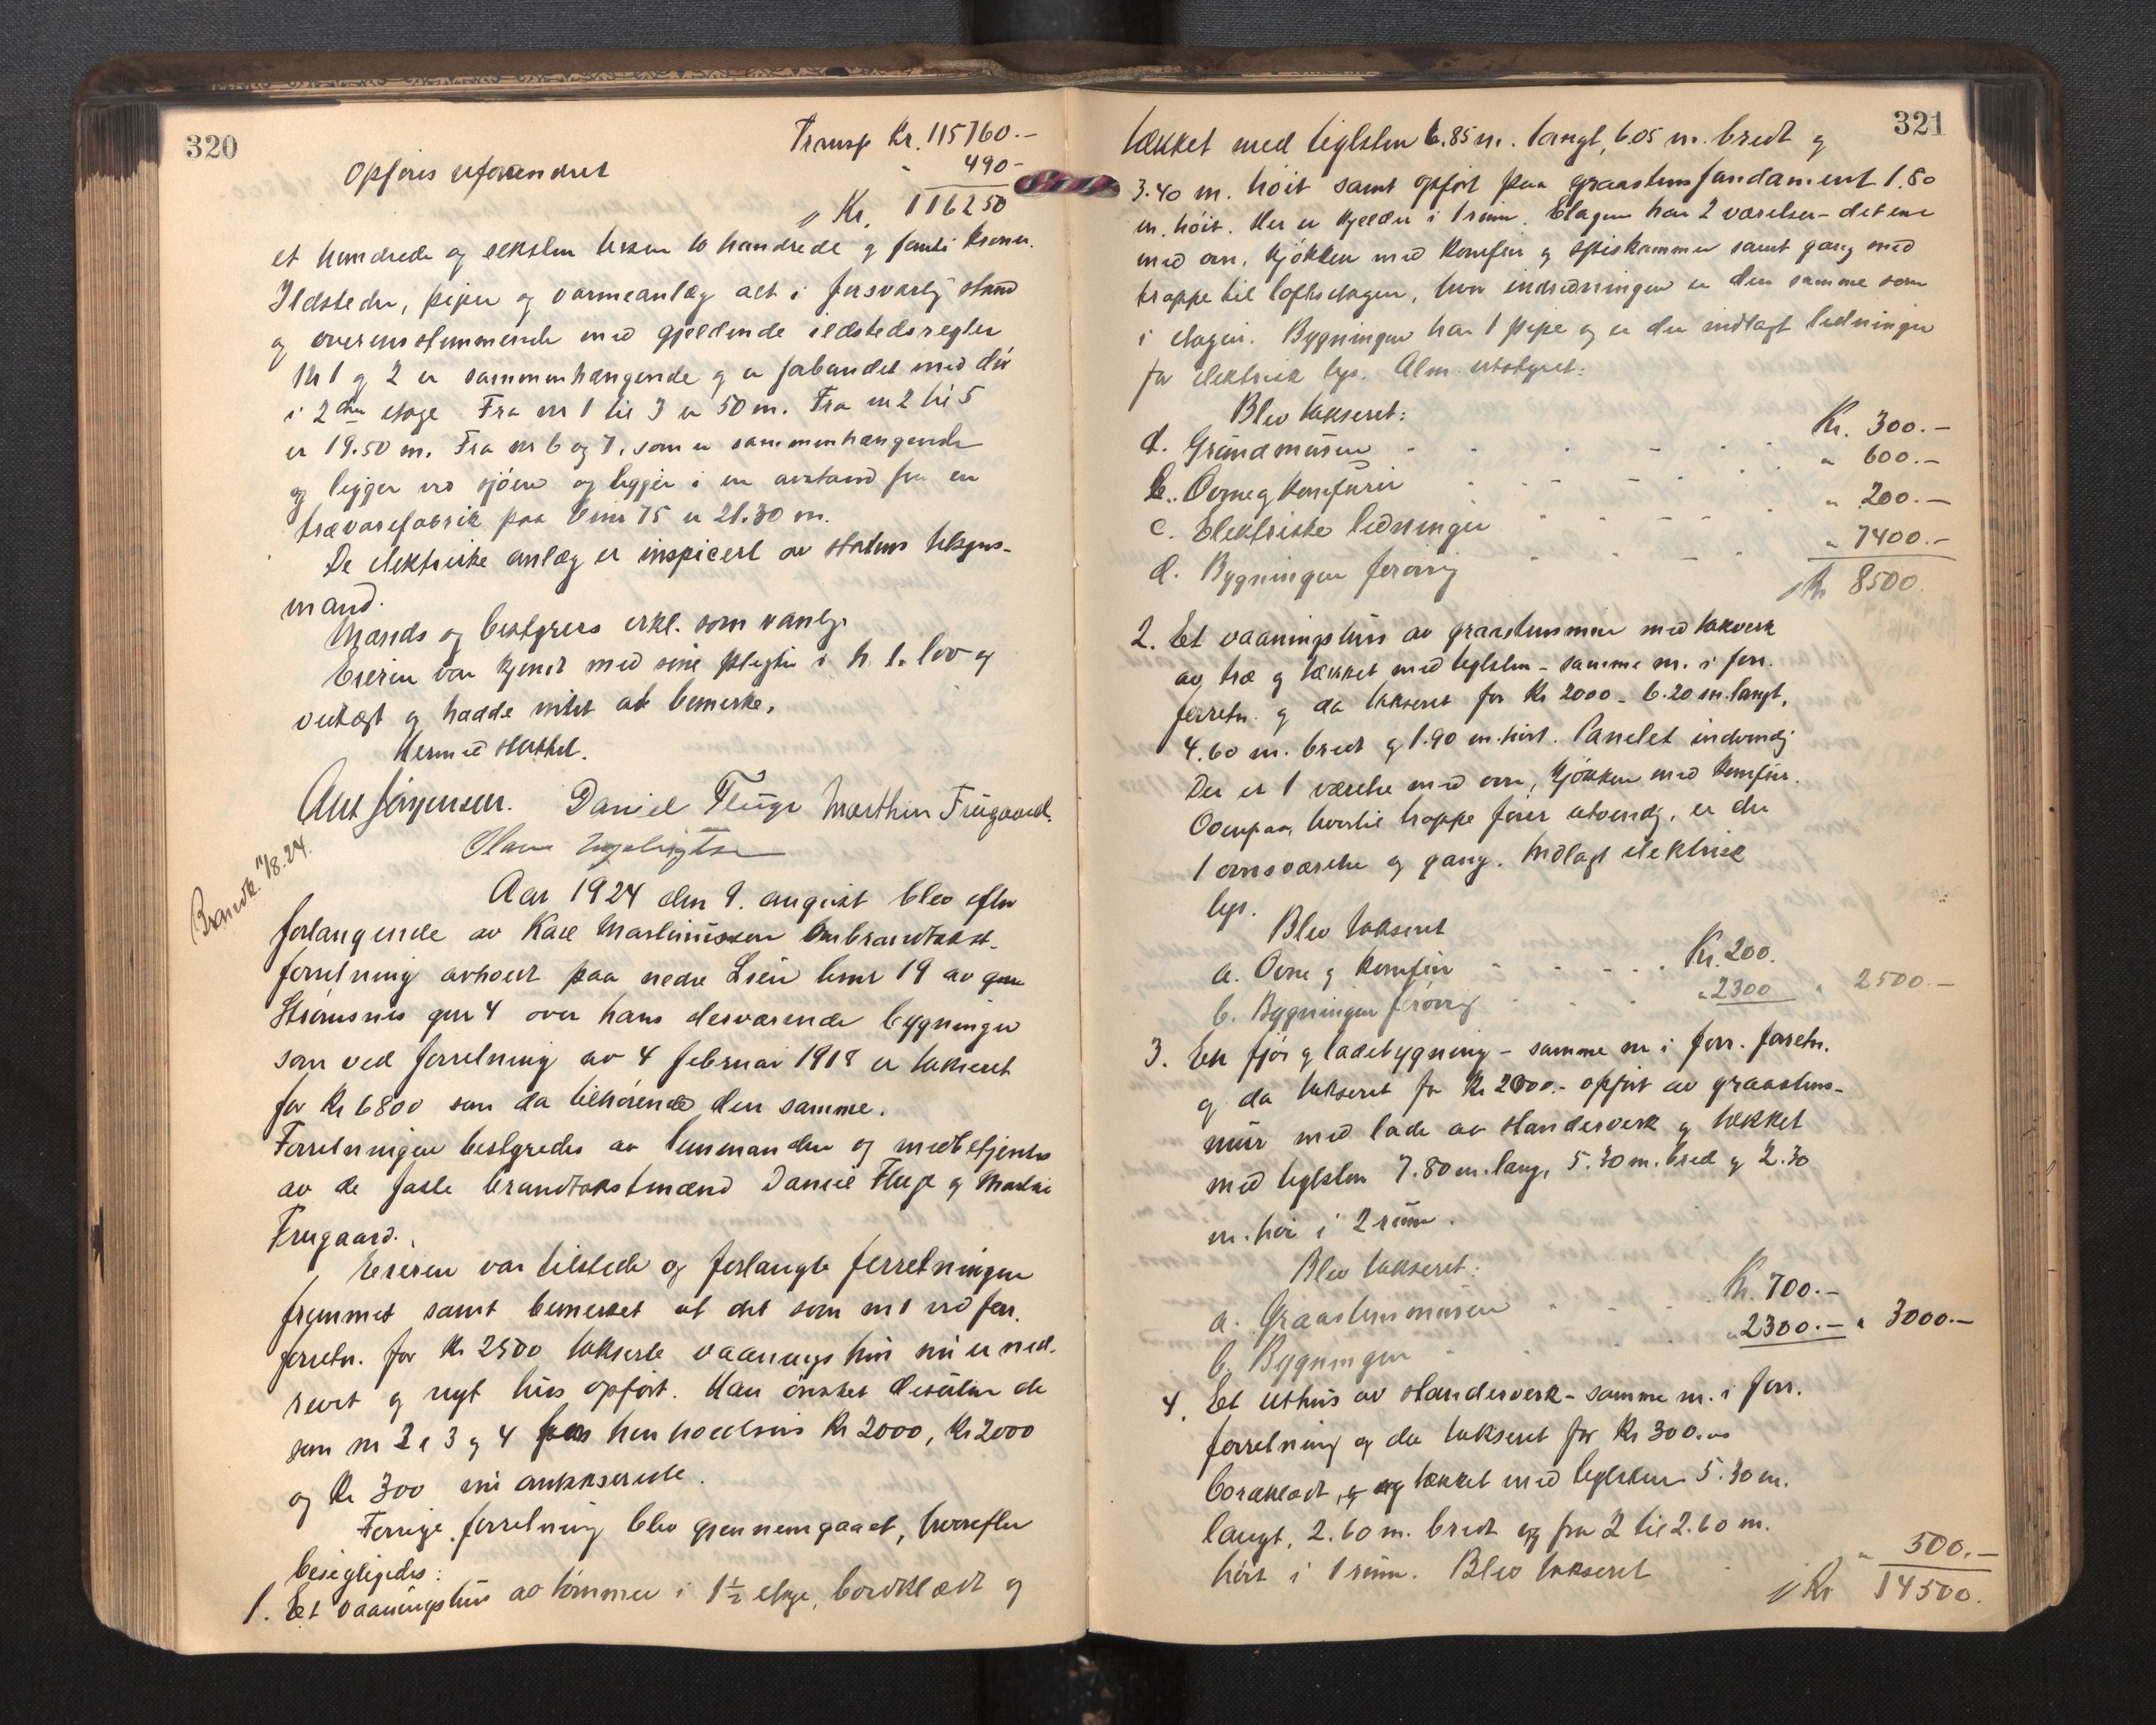 320
Transp Kr. 115760.-
Opføres uforandret " 490-
Kr. 116250
et hundrede og seksten tusen to hundrede og femti kroner.
Ildsteder, piper og varmeanlæg alt i forsvarlig stand
og overensstemmende med gjeldende ildstedsregler
Nr 1 og 2 er sammenhængende og er forbundet med dør
i 2den etage Fra nr 1 til 3 er 50 m. Fra nr 2 til 5
er 19.50 m. Fra nr 6 og 7, som er sammenhængende
og ligger ved sjøen og ligger i en avstand fra en
trævarefabrik paa bnr 75 er 21.30 m.
De elektriske anlæg er inspicert av statens tilsyns-
mand.
Mænds og bestyrers erkl. som vanlig.
Eieren var kjendt med sine pligter i h. t. lov og
vedtægt og hadde intet at bemerke.
Dermed sluttet.
Ant Jørgensen. Daniel Fluge Marthin Frugaard.
Olam
Brandtk. 11/8.24.
Aar 1924 den 9. august blev efter
forlangende av Karl Martinussen brandtakst-
forretning avholdt paa nedre Lien bnr 19 av gnr
Strømsnes gnr 4 over hans derværende bygninger
som ved forretning av 4 februar 1918 er taksert
for Kr 6800 som da tilhørende den samme.
Forretningen bestyredes av lensmanden og medbetjentes
av de faste brandtakstmænd Daniel Fluge og Martin
Frugaard.
Eieren var tilstede og forlangte forretningen
fremmet samt bemerket at det som nr 1 ved forr.
forretn. for Kr 2500 takserte vaaningshus nu er ned-
revet og nyt hus opført. Han ønsket desuten de
som nr 2, 3 og 4 for henholdsvis Kr 2000, Kr 2000
og Kr 300 nu omtakserte.
Forrige forretning blev gjennemgaaet, hvorefter
besigtigedes:
1. Et vaaningshus av tømmer i 1½ etage, bordklædt og
321
tækket med teglsten 6.85 m. langt, 6.05 m. bredt og
3.40 m. høit samt opført paa graastensfundament 1.80
m. høit. Her er kjelder i 1 rum. Etagen har 2 værelser - det ene
med ovn, kjøkken med komfur og spiskammer samt gang med
trappe til loftsetagen, hvor indredningen er den samme som
i etagen. Bygningen har 1 pipe og er der indlagt ledninger
for elektrisk lys. Alm. utstyret.
Blev taksert:
a. Grundmuren - - - Kr. 300.-
b. Ovne og komfurer - - - " 600.-
c. Elektriske ledninger - - - " 200.-
d. Bygningen forøvrig - - - " 7400.-
Kr 8500.
2. Et vaaningshus av graastensmur med takverk
av træ og tækket med teglsten - samme nr. i forr.
forretn. og da taksert for Kr 2000 - 6.20 m. langt,
4.60 m. bredt og 1.90 m. høit. Panelet indvendig
Der er 1 værelse med ovn, kjøkken med komfur.
Ovenpaa, hvortil trappe fører utvendig, er der
1 ovnsværelse og gang. Indlagt elektrisk
lys.
Blev taksert
a. Ovne og komfur - - - Kr. 200.
b. Bygningen forøvrig - - - " 2300 " 2500.-
3. En fjøs og ladebygning - samme nr i forr. forretn.
og da taksert for Kr 2000.- opført av graastens-
mur med lade av standerverk og tækket
med teglsten 7.80 m. lang, 5.30 m. bred og 2.30
m. høi i 2 rum.
Blev taksert:
a. Graastensmuren - - - Kr. 700.-
b. Bygningen - - - " 2300.- " 3000.-
4. Et uthus av standerverk - samme nr. i forr.
forretning og da taksert for Kr 300.00
bordklædt, og tækket med teglsten 5.30 m.
langt, 2.60 m. bredt og fra 2 til 2.60 m.
høit i 1 rum. Blev taksert - " 500.-
Kr 14500.